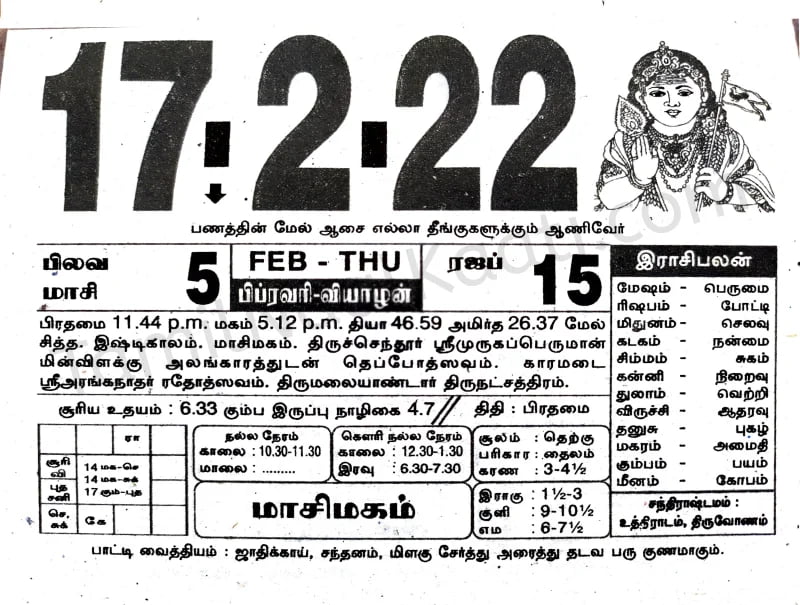 17.2.22
பணத்தின் மேல் ஆசை எல்லா தீங்குகளுக்கும் ஆணிவேர்
பிலவ
மாசி
5
FEB - THU
பிப்ரவரி-வியாழன்
ரஜப்
15
பிரதமை 11.44 p.m. மகம் 5.12 p.m. தியா 46.59 அமிர்த 26.37 மேல்
சித்த. இஷ்டிகாலம். மாசிமகம். திருச்செந்தூர் ஸ்ரீமுருகப்பெருமான்
மின்விளக்கு அலங்காரத்துடன் தெப்போத்ஸவம். காரமடை
ஸ்ரீஅரங்கநாதர் ரதோத்ஸவம். திருமலையாண்டார் திருநட்சத்திரம்.
சூரிய உதயம் : 6.33 கும்ப இருப்பு நாழிகை 4.7 // திதி : பிரதமை
ரா
சூரி
வி
புத
சனி
செ,
சுக்
கே
14 மக-செ
14 மக-சுக்
17 கும்-புத
நல்ல நேரம்
காலை : 10.30-11.30
மாலை : .........
கௌரி நல்ல நேரம்
காலை : 12.30-1.30
இரவு : 6.30-7.30
மாசிமகம்
சூலம் : தெற்கு
பரிகார : தைலம்
கரண : 3-4½
இராகு : 1½-3
குளி : 9-10½
எம : 6-7½
இராசிபலன்
மேஷம் - பெருமை
ரிஷபம் - போட்டி
மிதுனம் - செலவு
கடகம் - நன்மை
சிம்மம் - சுகம்
கன்னி - நிறைவு
துலாம் - வெற்றி
விருச்சி - ஆதரவு
தனுசு - புகழ்
மகரம் - அமைதி
கும்பம் - பயம்
மீனம் - கோபம்
சந்திராஷ்டமம் :
உத்திராடம், திருவோணம்
பாட்டி வைத்தியம் : ஜாதிக்காய், சந்தனம், மிளகு சேர்த்து அரைத்து தடவ பரு குணமாகும்.